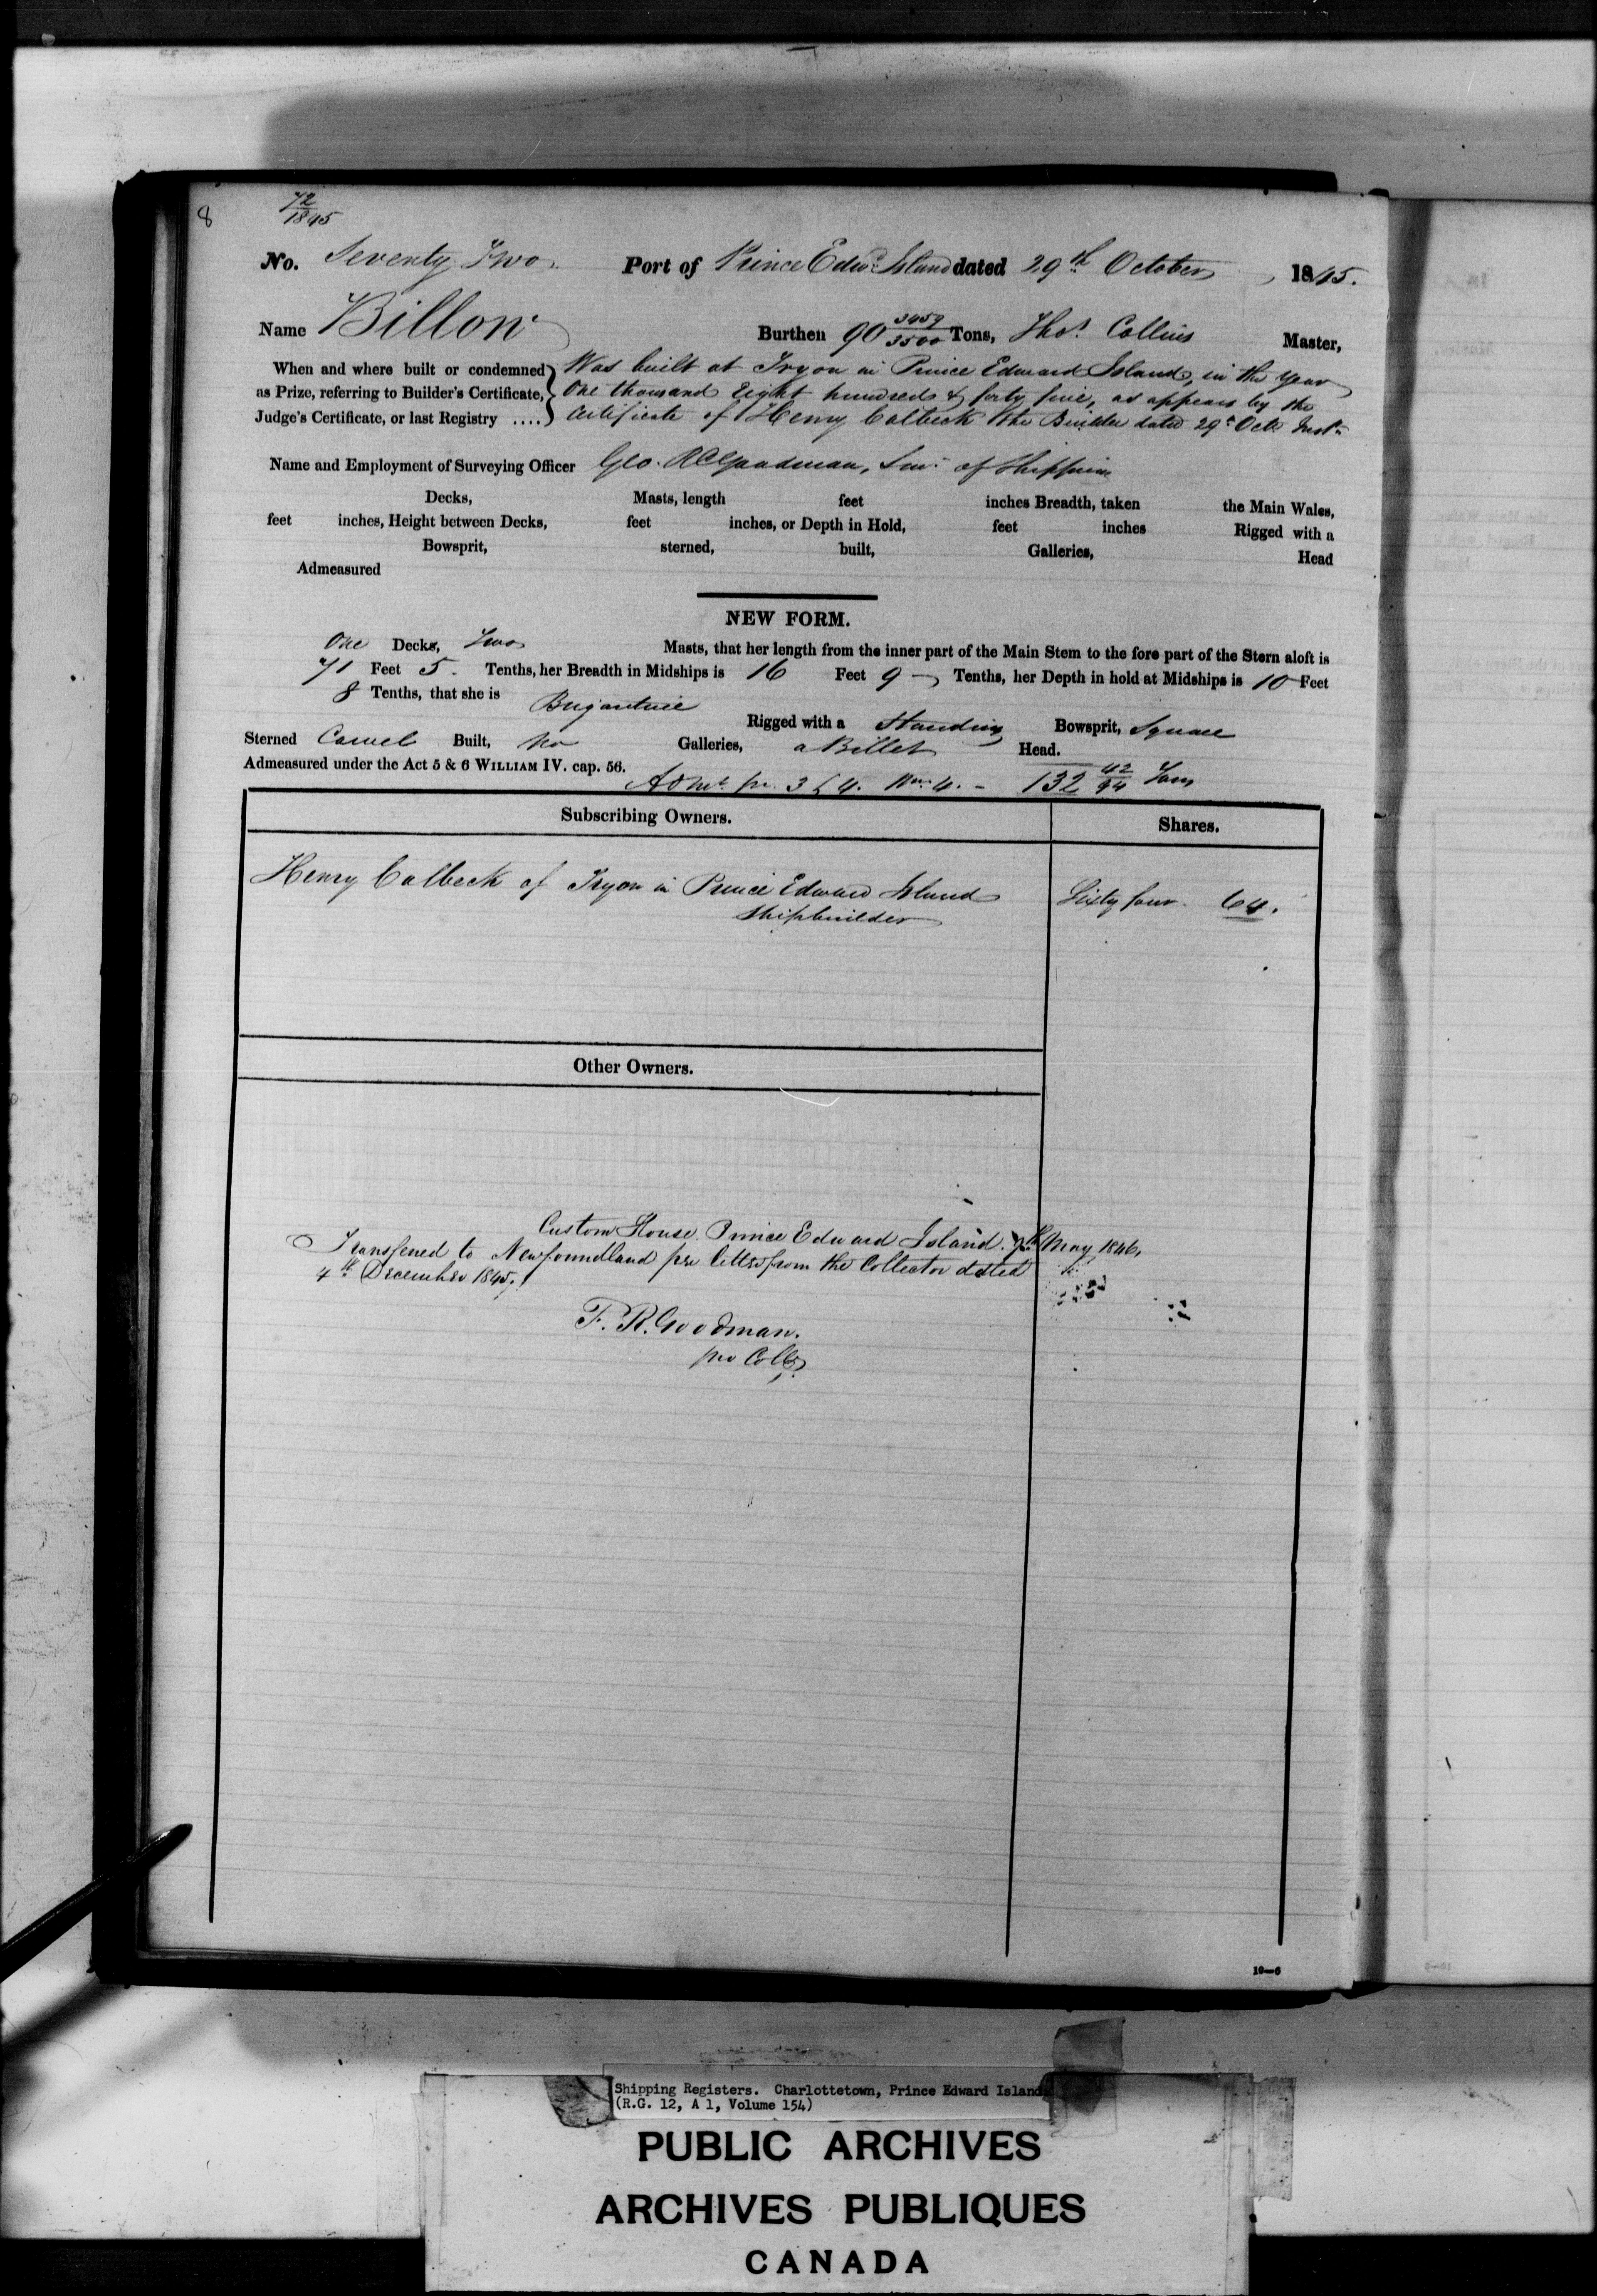 8
72/1845
No. Seventy Two Port of Prince Edwd Island dated 29th October 1845.
Name Billow Burthen 90 3459/3500 Tons, Thos. Collins Master,
When and where built or condemned Was built at Tryon in Prince Edward Island, in the year
as Prize, referring to Builder's Certificate, One thousand Eight hundred & forty five, as appears by the
Judge's Certificate, or last Registry .... Certificate of Henry Calbeck the Builder dated 29th Octr Inst.
Name and Employment of Surveying Officer Geo. R Goodman, Surv. of Shipping
Decks, Masts, length feet inches Breadth, taken the Main Wales,
feet inches, Height between Decks, feet inches, or Depth in Hold, feet inches Rigged with a
Bowsprit, sterned, built, Galleries, Head
Admeasured
NEW FORM.
One Decks, Two Masts, that her length from the inner part of the Main Stem to the fore part of the Stern aloft is
71 Feet 5. Tenths, her Breadth in Midships is 16 Feet 9 — Tenths, her Depth in hold at Midships is 10 Feet
8 Tenths, that she is Brigantine
Rigged with a Standing Bowsprit, Square
Sterned Carvel Built, no Galleries, a Billet Head.
Admeasured under the Act 5 & 6 WILLIAM IV. cap. 56.
Admt. pr. 3 & 4. Wm. 4. - 132 42/94 Tons
Subscribing Owners. Shares.
Henry Calbeck of Tryon in Prince Edward Island Sixty four. 64.
Shipbuilder
Other Owners.
Custom House Prince Edward Island. May 1846.
Transfered to Newfoundland per letter from the Collector dated
4th December 1845.
F. R. Goodman.
pro Collr
10—6
Shipping Registers. Charlottetown, Prince Edward Island
(R.G. 12, A 1, Volume 154)
PUBLIC ARCHIVES
ARCHIVES PUBLIQUES
CANADA